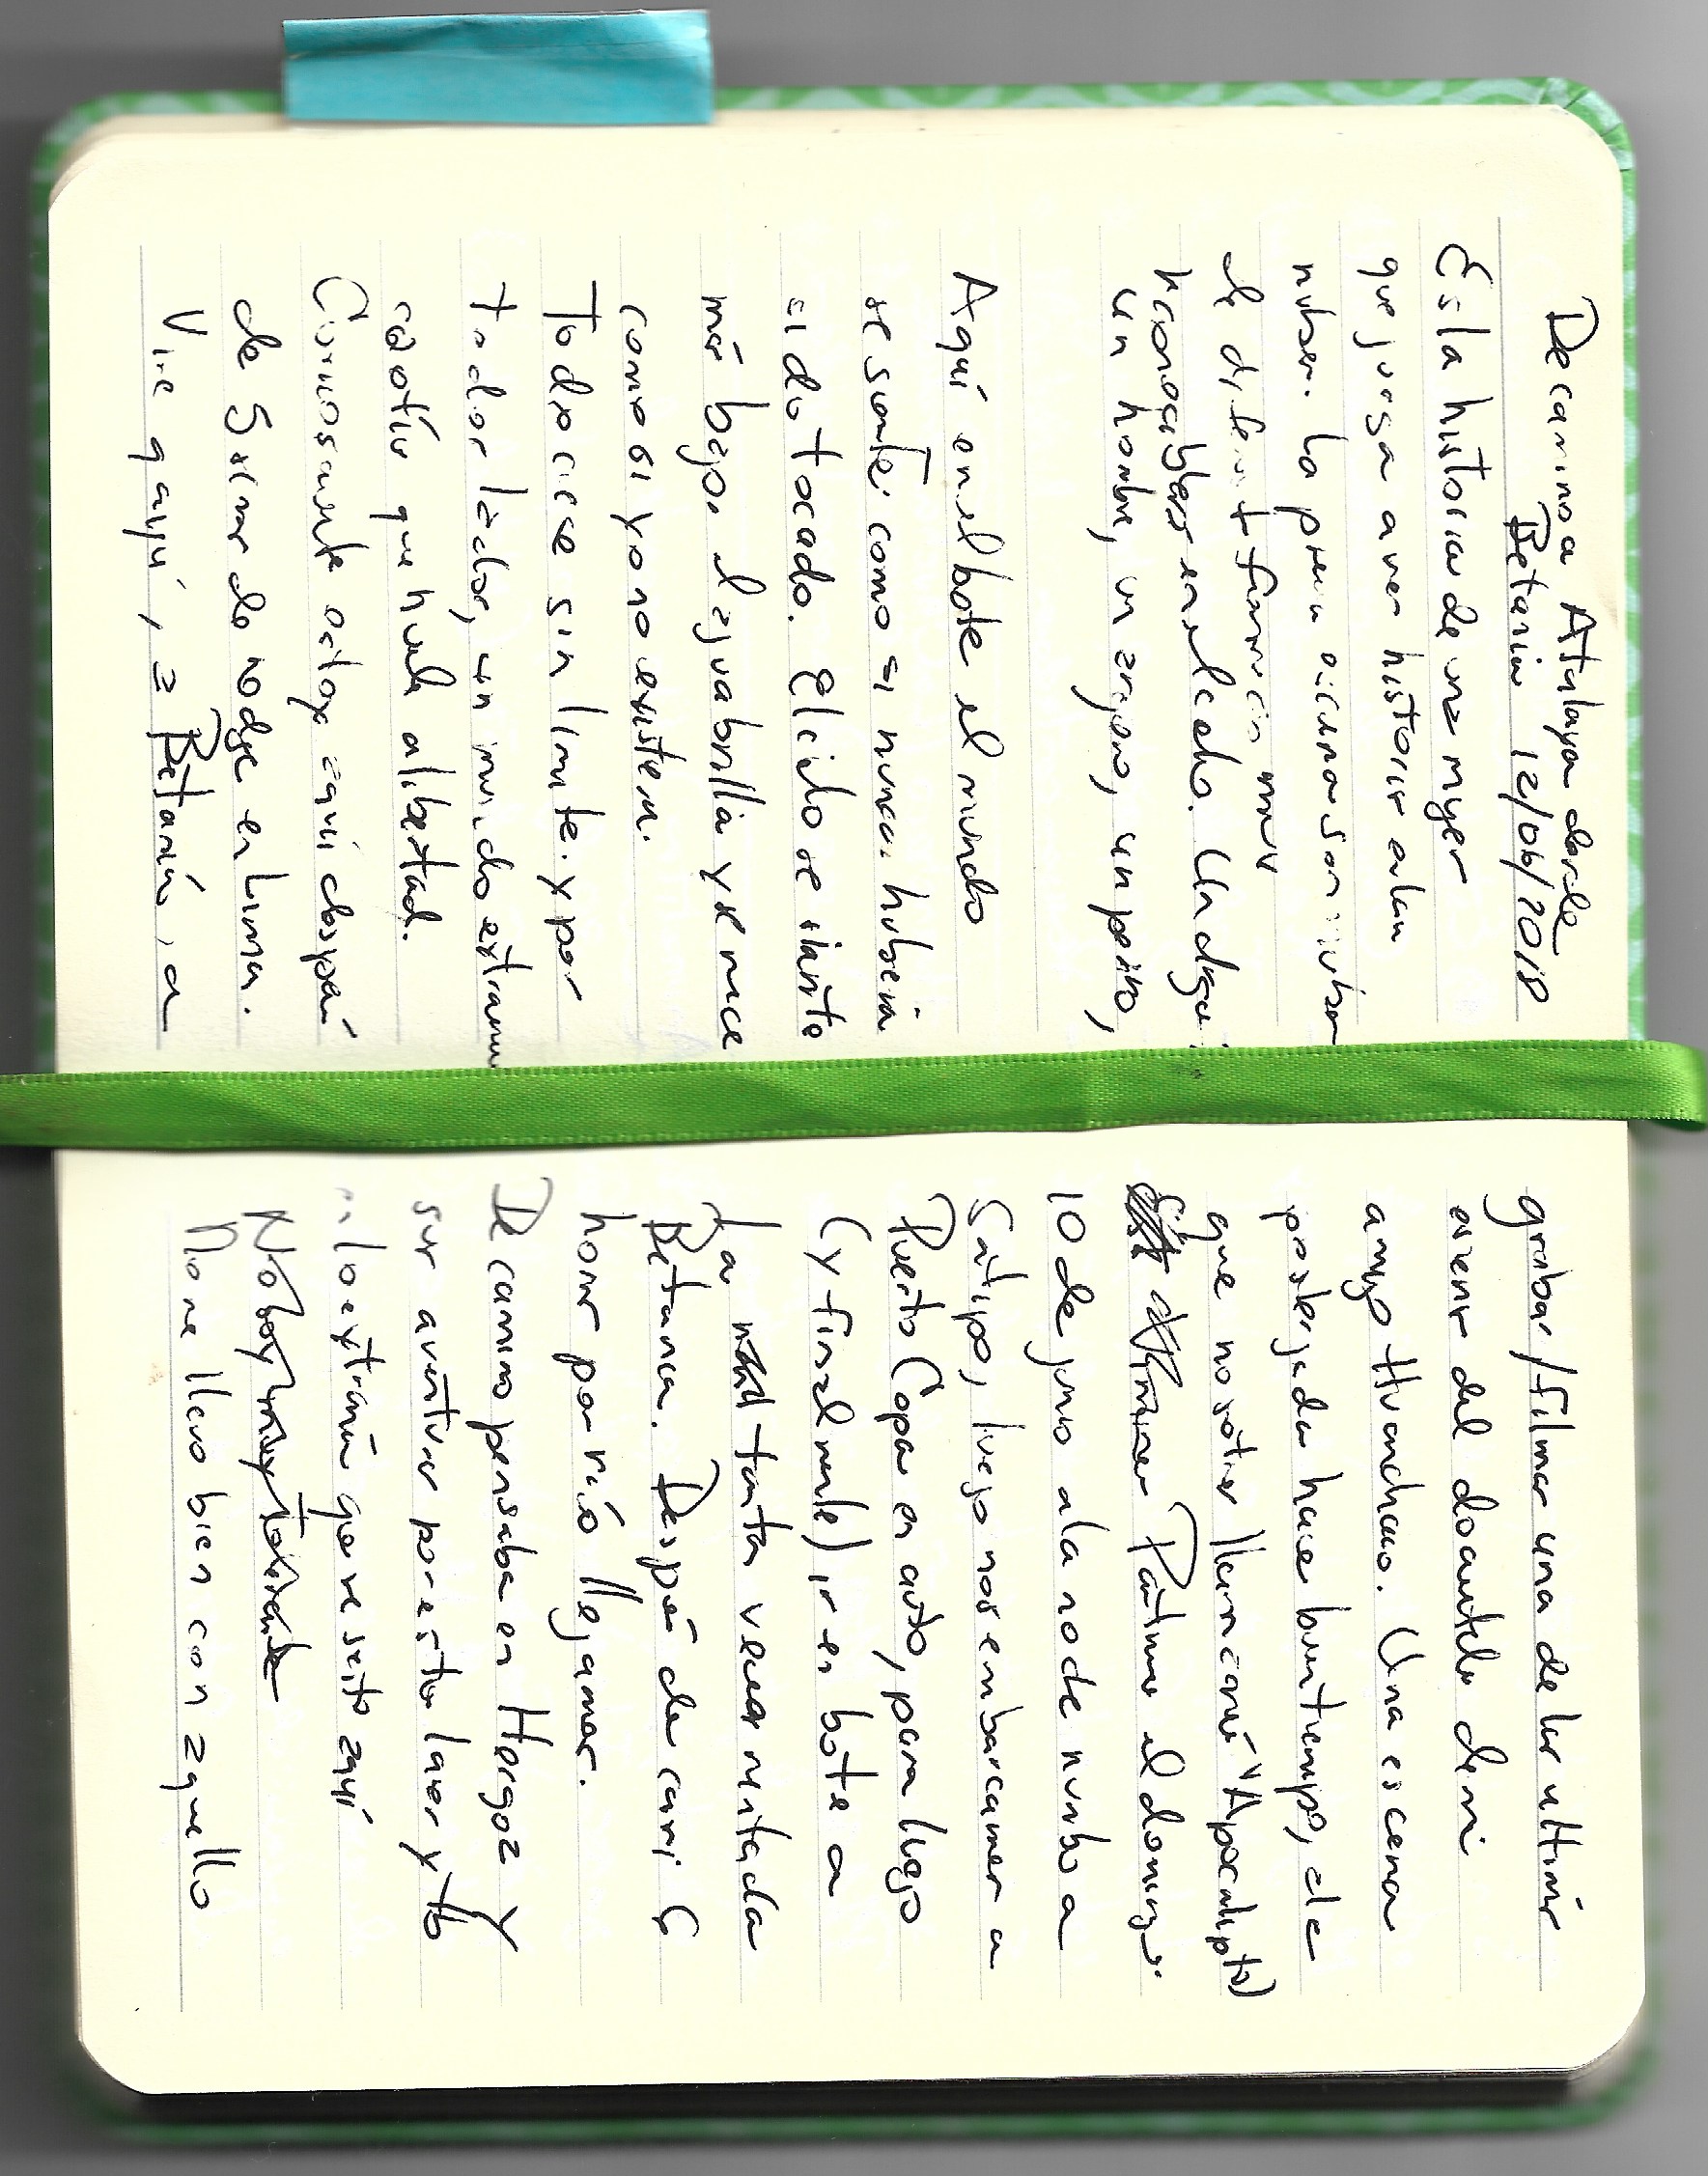 De camino a Atalaya desde
Betania 12/06/2018
Es la historia de una mujer
que juega a ver historias en las
nubes. Lo
de diferentes
reconocibles en el cielo. Un
un hombre, un anciano, un perro,
Aquí en el bote el mundo
se siente como si nunca hubiera
sido tocado. El cielo se siente
más bajo. El agua brilla y se mece
como si yo no existiera.
Todo crece sin límite y por
todos lados, un mundo extraño
caótico que huele a libertad.
Curiosamente estoy aquí después
de 5 semanas de rodaje en Lima.
Vine aquí, a Betania, a
grabar/filmar una de las últimas
escenas del documental de mi
amigo Huanchaco. Una escena
postergada hace buen tiempo, de
que nosotros llamamos "Apocalipto"
Partimos el domingo
10 de junio a la noche rumbo a
Satipo, luego nos embarcamos a
Puerto Copa en auto, para luego
(y finalmente) ir en bote a
La tantas veces mentada
Betania. Después de casi 6
horas por río llegamos.
De camino pensaba en Herzog y
sus aventuras por estos lares y
lo extraño que me siento aquí
No soy muy tolerante
No me llevo bien con aquello